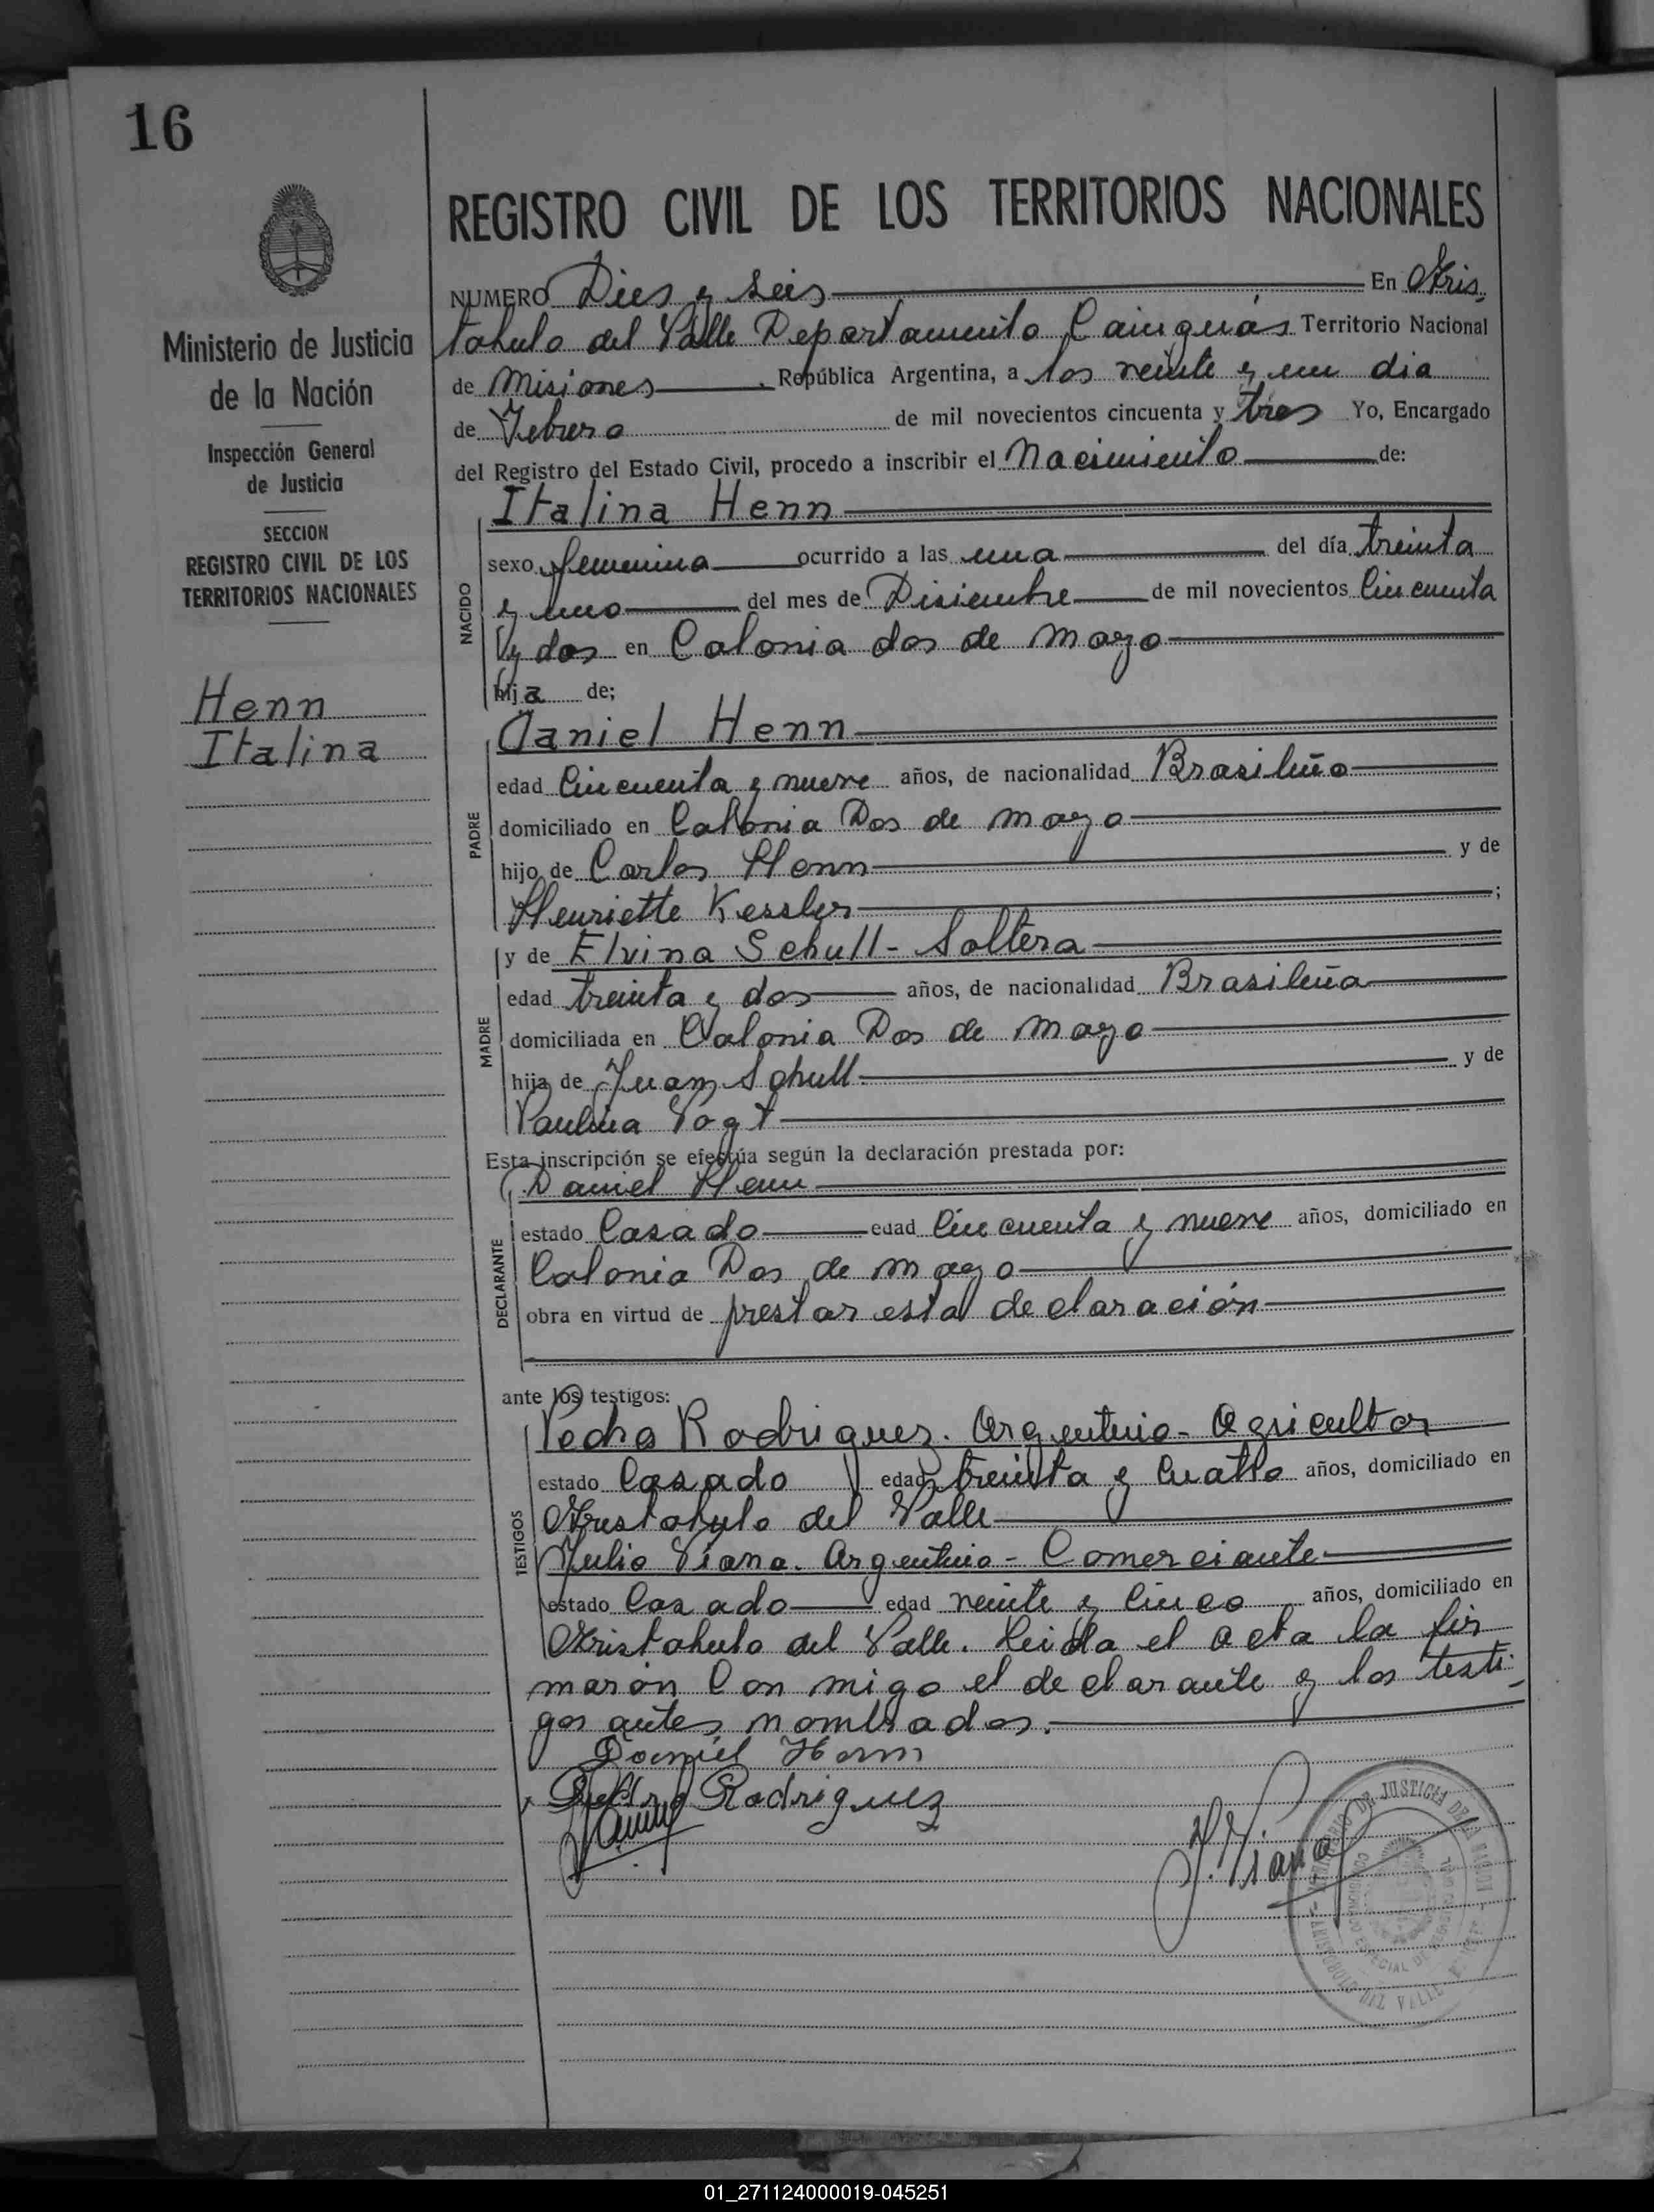 16
REGISTRO CIVIL DE LOS TERRITORIOS NACIONALES
Ministerio de Justicia
de la Nación
Inspección General
de Justicia
SECCION
REGISTRO CIVIL DE LOS
TERRITORIOS NACIONALES
Henn
Italina
NUMERO Dies y seis En Aris
tobulo del Valle Departamento Cainguás Territorio Nacional
de Misiones República Argentina, a los veinte y un dia
de Febrero de mil novecientos cincuenta y tres Yo, Encargado
del Registro del Estado Civil, procedo a inscribir el Nacimiento de:
NACIDO
Italina Henn
sexo femenina ocurrido a las una del día treinta
y uno del mes de Disiembre de mil novecientos Cincuenta
y dos en Colonia dos de mayo
hija de;
PADRE
Daniel Henn
edad Cincuenta y nueve años, de nacionalidad Brasileño
domiciliado en Colonia Dos de mayo
hijo de Carlos Henn y de
Henriette Kessler ;
MADRE
y de Elvina Schull - Soltera
edad treinta y dos años, de nacionalidad Brasileña
domiciliada en Colonia Dos de mayo
hija de Juan Schull y de
Paulina Vogt
Esta inscripción se efectúa según la declaración prestada por:
DECLARANTE
Daniel Henn
estado Casado edad Cincuenta y nueve años, domiciliado en
Colonia Dos de mayo
obra en virtud de prestar esta declaración
ante los testigos:
TESTIGOS
Pedro Rodriguez. Argentino - Agricultor
estado Casado edad treinta y Cuatro años, domiciliado en
Aristobulo del Valle
Julio Viana. Argentino - Comerciante
estado Casado edad veinte y Cinco años, domiciliado en
Aristobulo del Valle. Leida el acta la fir
maron Con migo el declarante y los testi-
gos antes nombrados.
Daniel Henn
Pedro Rodriguez
J. Viana
MINISTERIO DE JUSTICIA DE LA NACION
ARISTOBULO DEL VALLE
01_271124000019-045251